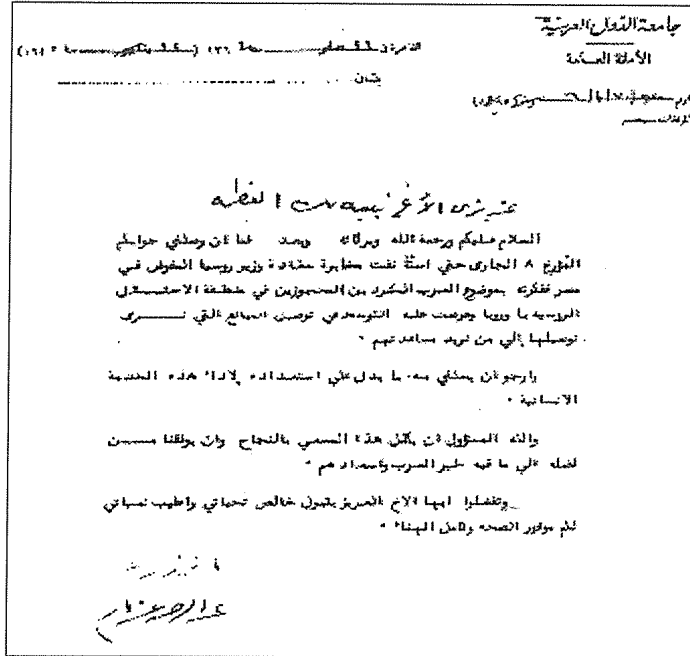 جامعة الدول العربية
الأمانة العامة
القاهرة في
بشأن
عزيزي الأخ نبيه بك العظمه
السلام عليكم ورحمة الله وبركاته وبعد فما ان وصلني جوابكم
المؤرخ ٨ الجاري حتي مقابلة وزير روسيا المفوض في
مصر بموضوع العرب من المحجوزين في منطقة الاحتلال
الروسيه باوروبا وعرضت عليه التوسط في توصيل المبالغ التي نــرى
توصيلها إلي من نريد مساعدتهم ٠
وارجو ان يصلني منه ما يدل علي استعداده لاداء هذه الخدمة
الانسانية ٠
والله المسئول ان يكلل هذا المسعي بالنجاح وان يوفقنا مــن
فضله الي ما فيه خير العرب واسعادهم ٠
وتفضلوا ايها الاخ العزيز بقبول خالص تحياتي واطيب تمنياتي
لكم موفور الصحه وكامل الهناء ٠
عبد الرحمن عزام